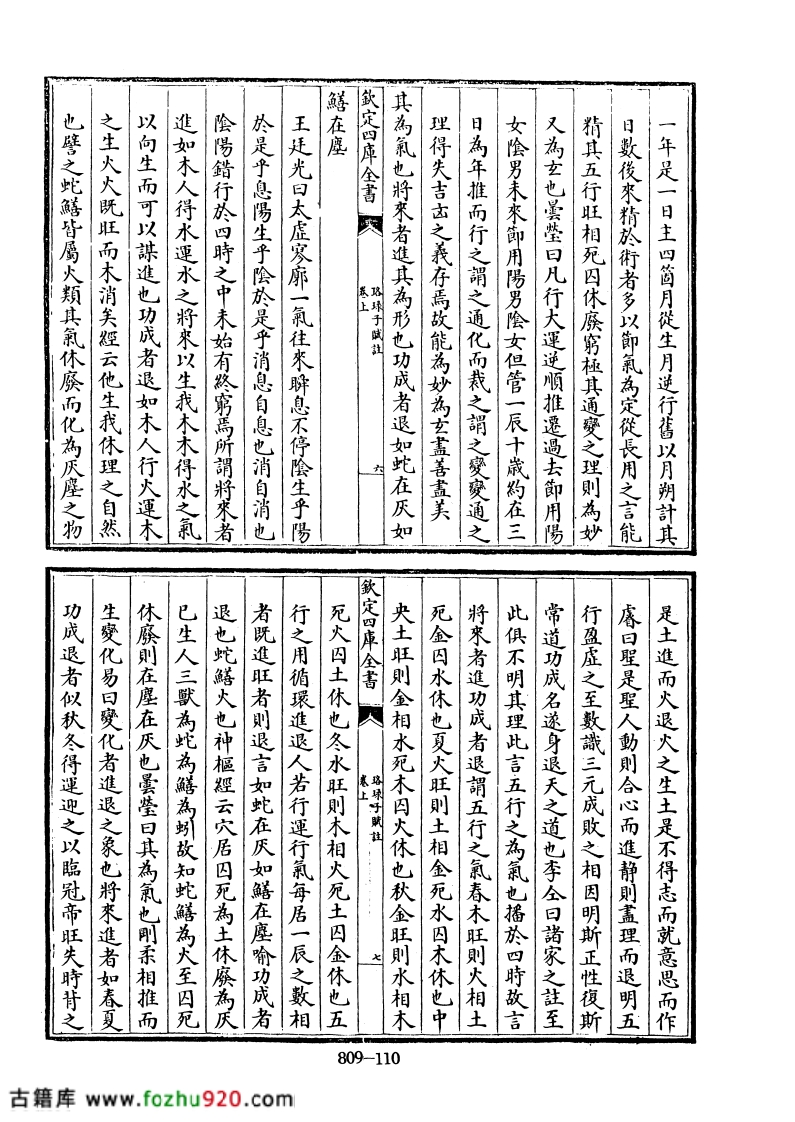 一年是一日主四箇月從生月逆行舊以月朔計其
日數後來精於術者多以節氣為定從長用之言能
精其五行旺相死囚休廢窮極其通變之理則為妙
又為玄也曇瑩曰凡行大運逆順推遷過去節用陽
女陰男未來節用陽男陰女但管一辰十歲約在三
日為年推而行之謂之通化而裁之謂之變變通之
理得失吉凶之義存焉故能為妙為玄盡善盡美
其為氣也將來者進其為形也功成者退如蛇在灰如
欽定四庫全書
珞琭子賦註
卷上
六
鱔在塵
王廷光曰太虛寥廓一氣往來瞬息不停陰生乎陽
於是乎息陽生乎陰於是乎消息自息也消自消也
陰陽錯行於四時之中未始有終窮焉所謂將來者
進如木人得水運水之將來以生我木木得水之氣
以向生而可以謀進也功成者退如木人行火運木
之生火火既旺而木消矣經云他生我休理之自然
也譬之蛇鱔皆屬火類其氣休廢而化為灰塵之物
是土進而火退火之生土是不得志而就意思而作
睿曰聖是聖人動則合心而進静則盡理而退明五
行盈虛之至數識三元成敗之相因明斯正性復斯
常道功成名遂身退天之道也李仝曰諸家之註至
此俱不明其理此言五行之為氣也播於四時故言
將來者進功成者退謂五行之氣春木旺則火相土
死金囚水休也夏火旺則土相金死水囚木休也中
央土旺則金相水死木囚火休也秋金旺則水相木
欽定四庫全書
珞琭子賦註
卷上
七
死火囚土休也冬水旺則木相火死土囚金休也五
行之用循環進退人若行運行氣每居一辰之數相
者既進旺者則退言如蛇在灰如鱔在塵喻功成者
退也蛇鱔火也神樞經云穴居囚死為土休廢為灰
巳生人三獸為蛇為鱔為蚓故知蛇鱔為火至囚死
休廢則在塵在灰也曇瑩曰其為氣也剛柔相推而
生變化易曰變化者進退之象也將來進者如春夏
功成退者似秋冬得運迎之以臨冠帝旺失時背之
809—110
古籍库 www.fozhu920.com